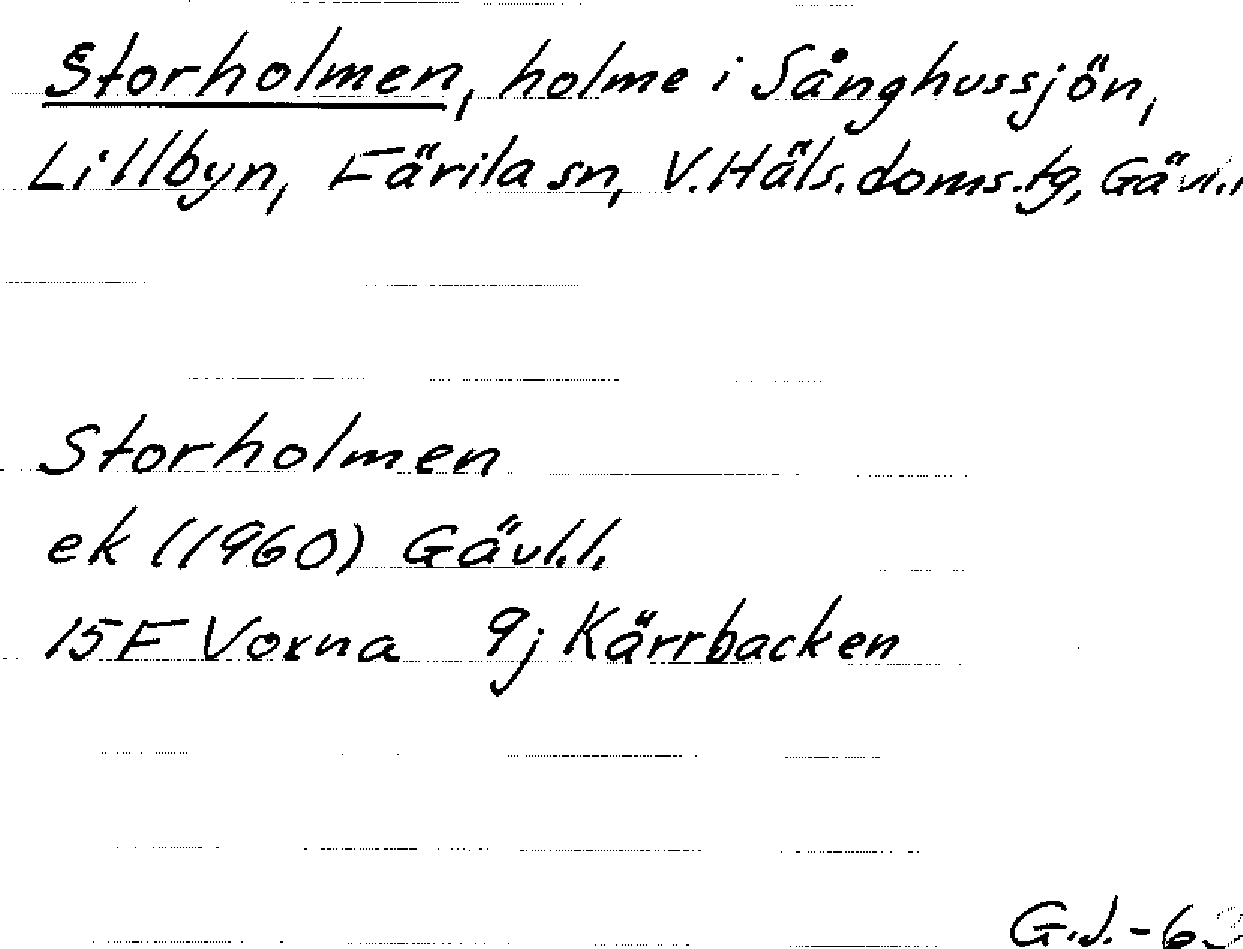 Storholmen, holme i Sånghussjön,
Lillbyn, Färila sn, V. Häls. doms.tg, Gävl.l
Storholmen
ek (1960) Gävl.l.
15F Voxna 9j Kärrbacken
G.J.-63